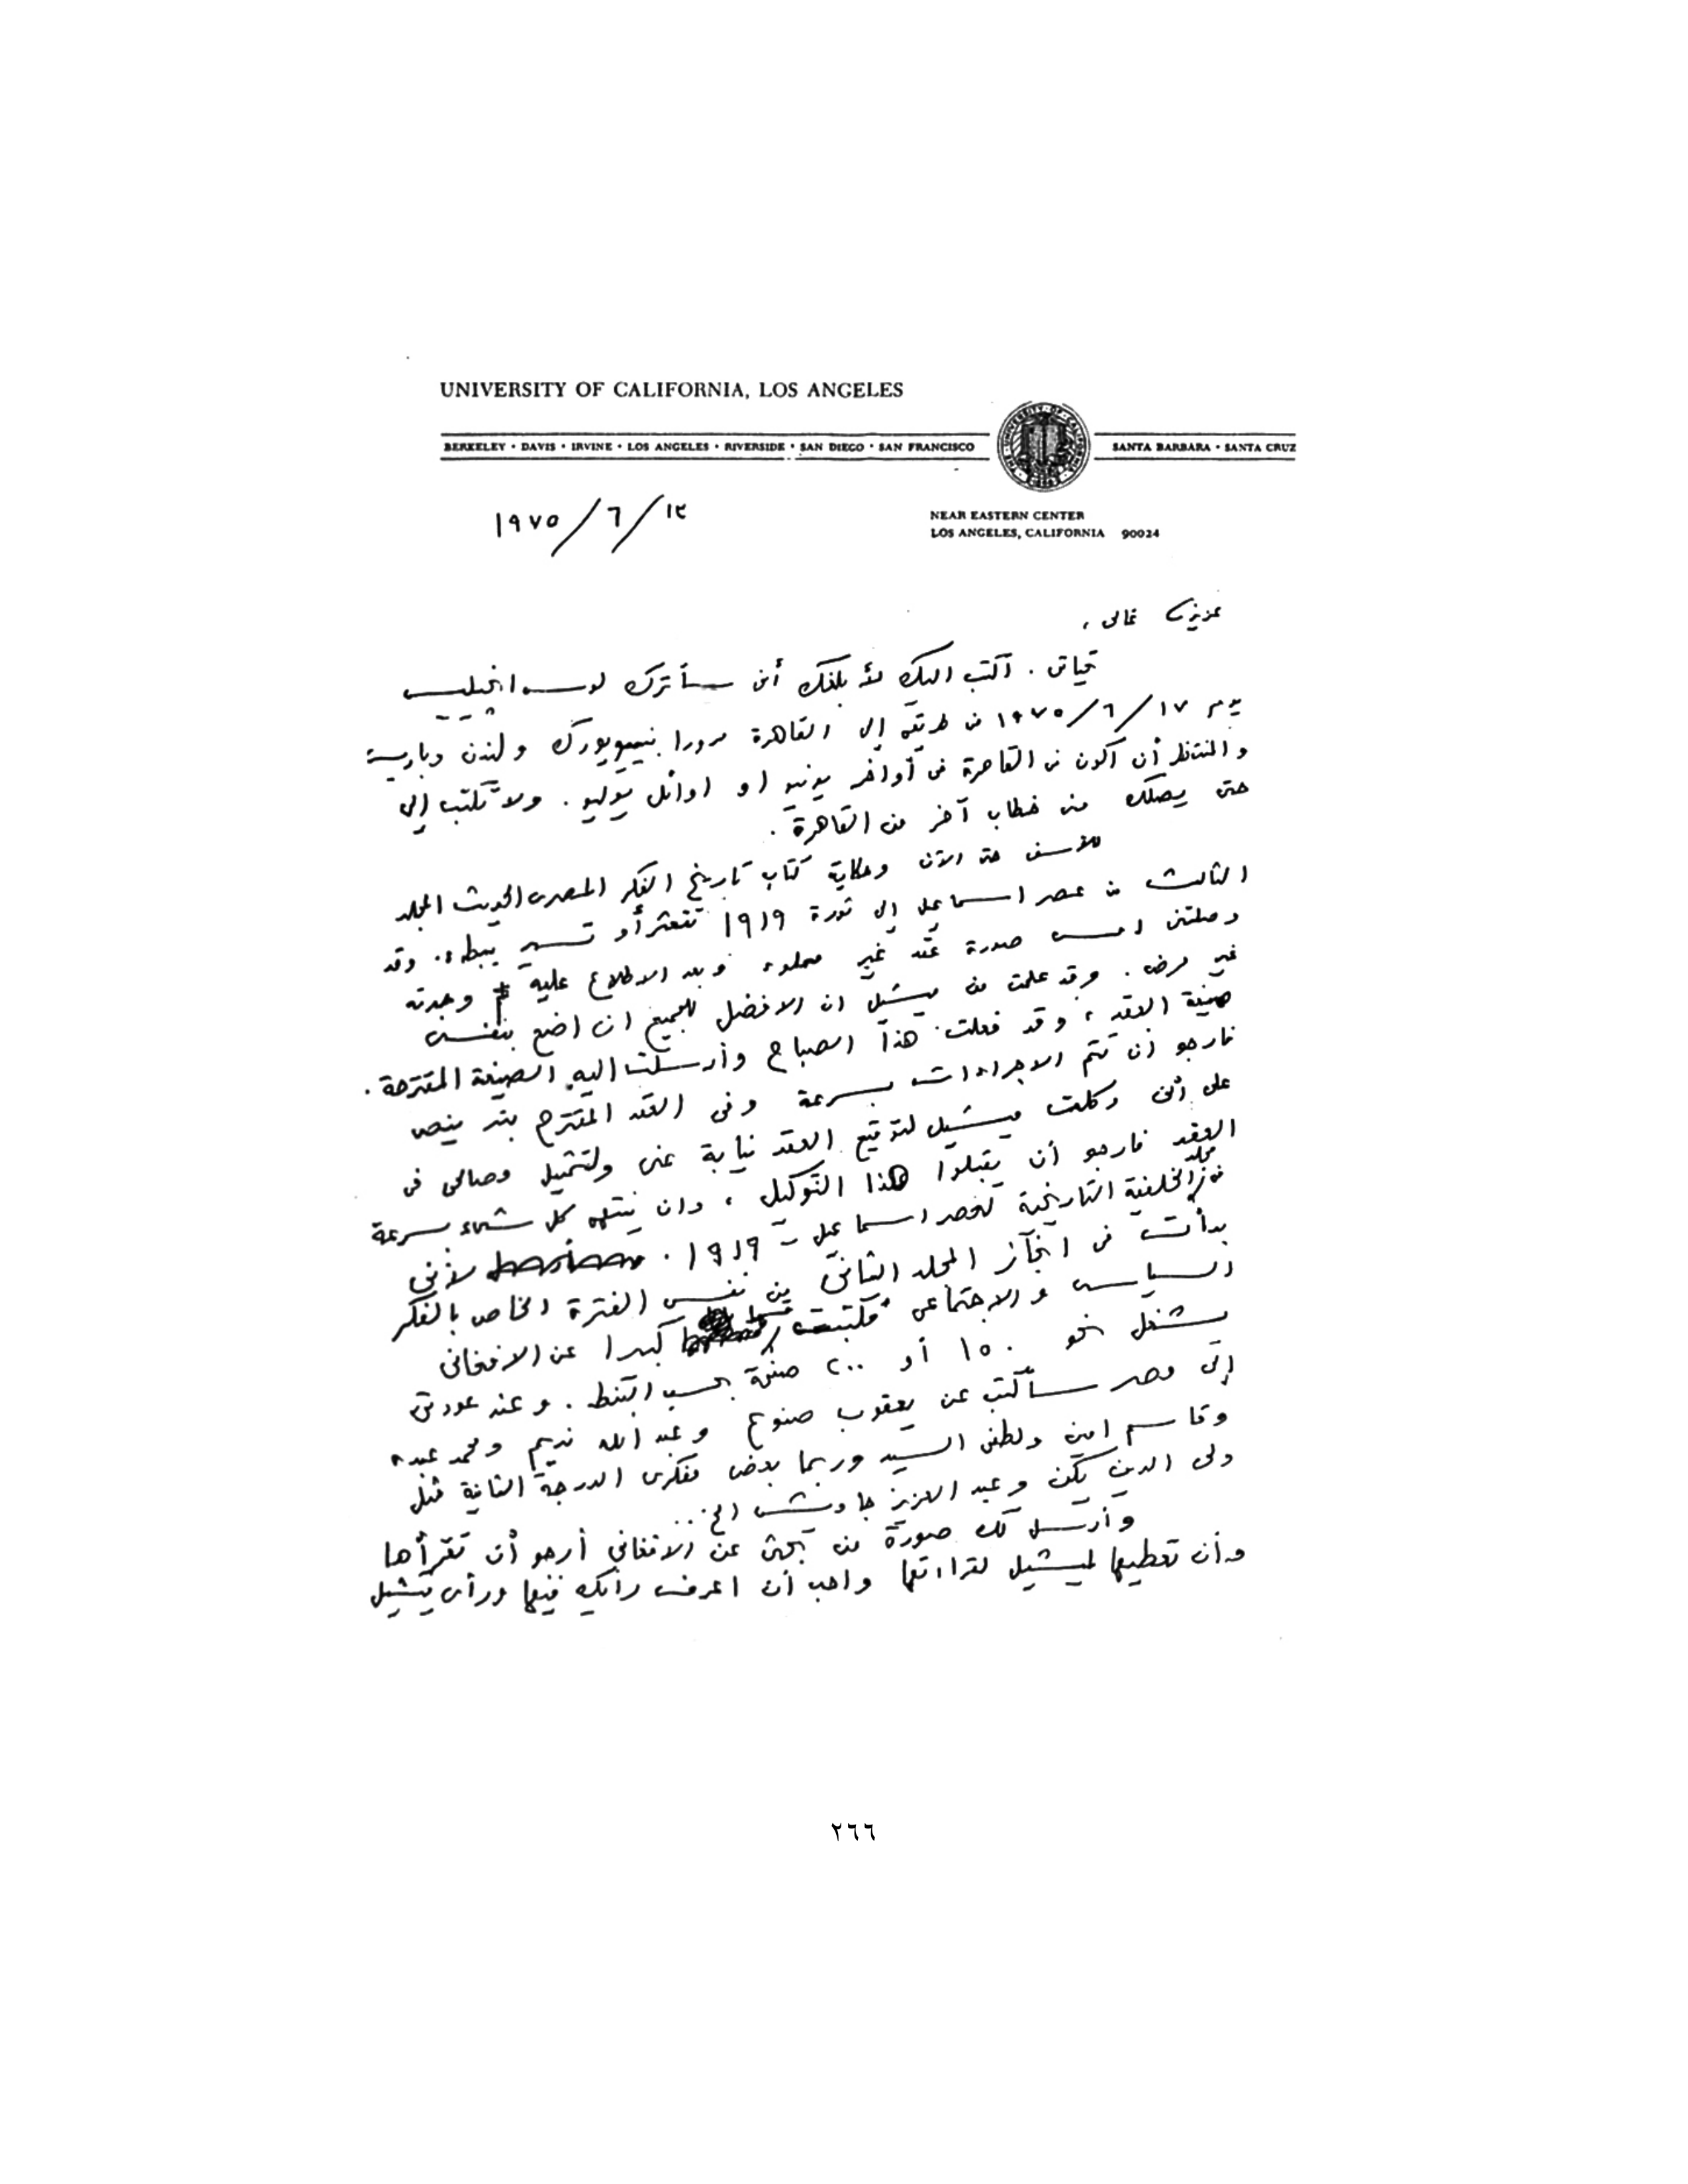 UNIVERSITY OF CALIFORNIA, LOS ANGELES
BERKELEY • DAVIS • IRVINE • LOS ANGELES • RIVERSIDE • SAN DIEGO • SAN FRANCISCO
SANTA BARBARA • SANTA CRUZ
NEAR EASTERN CENTER
LOS ANGELES, CALIFORNIA 90024
١٢/٦/١٩٧٥
عزيزى غالى ،
تحياتى . أكتب اليك لأبلغك أنى سأترك لوس انجيليس
يوم ١٧/٦/١٩٧٥ فى طريقى إلى القاهرة مرورا بنيويورك ولندن وباريس
والمنتظر أن أكون فى القاهرة فى أواخر يونيو او اوائل يوليو . ولا تكتب إلى
حتى يصلك منى خطاب آخر من القاهرة .
للأسف حتى الآن وحكاية كتاب تاريخ الفكر المصرى الحديث المجلد
الثالث من عصر اسماعيل إلى ثورة ١٩١٩ تتعثر أو تسير ببطء . وقد
وصلتنى امس صورة عقد غير مملوء وبعد الاطلاع عليه وجدته
غير مرض . وقد علمت من ميشيل ان الافضل للجميع ان اضع بنفسى
صيغة العقد ، وقد فعلت هذا الصباح وأرسلت اليه الصيغة المقترحة .
فارجو ان تتم الاجراءات بسرعة وفى العقد المقترح بند ينص
على أنى وكلت ميشيل لتوقيع العقد نيابة عنى ولتمثيل مصالحى فى
العقد فارجو أن يقبلوا هذا التوكيل ، وان ينتهى كل شىء بسرعة
فى مجلد الخلفية التاريخية لعصر اسماعيل – ١٩١٩ . لأنى
بدأت فى انجاز المجلد الثانى من نفس الفترة الخاص بالفكر
السياسى والاجتماعى فكتبت قسما كبيرا عن الافغانى
يشغل نحو ١٥٠ أو ٢٠٠ صفحة بحسب البنط . وعند عودتى
إلى مصر سأكتب عن يعقوب صنوع وعبد الله نديم ومحمد عبده
وقاسم امين ولطفى السيد وربما بعض مفكرى الدرجة الثانية مثل
ولى الدين يكن وعبد العزيز جاويش الخ...
وأرسل لك صورة من بحثى عن الافغانى أرجو أن تقرأها
وأن تعطيها لميشيل لقراءتها واحب أن اعرف رأيك فيها ورأى ميشيل
٢٦٦